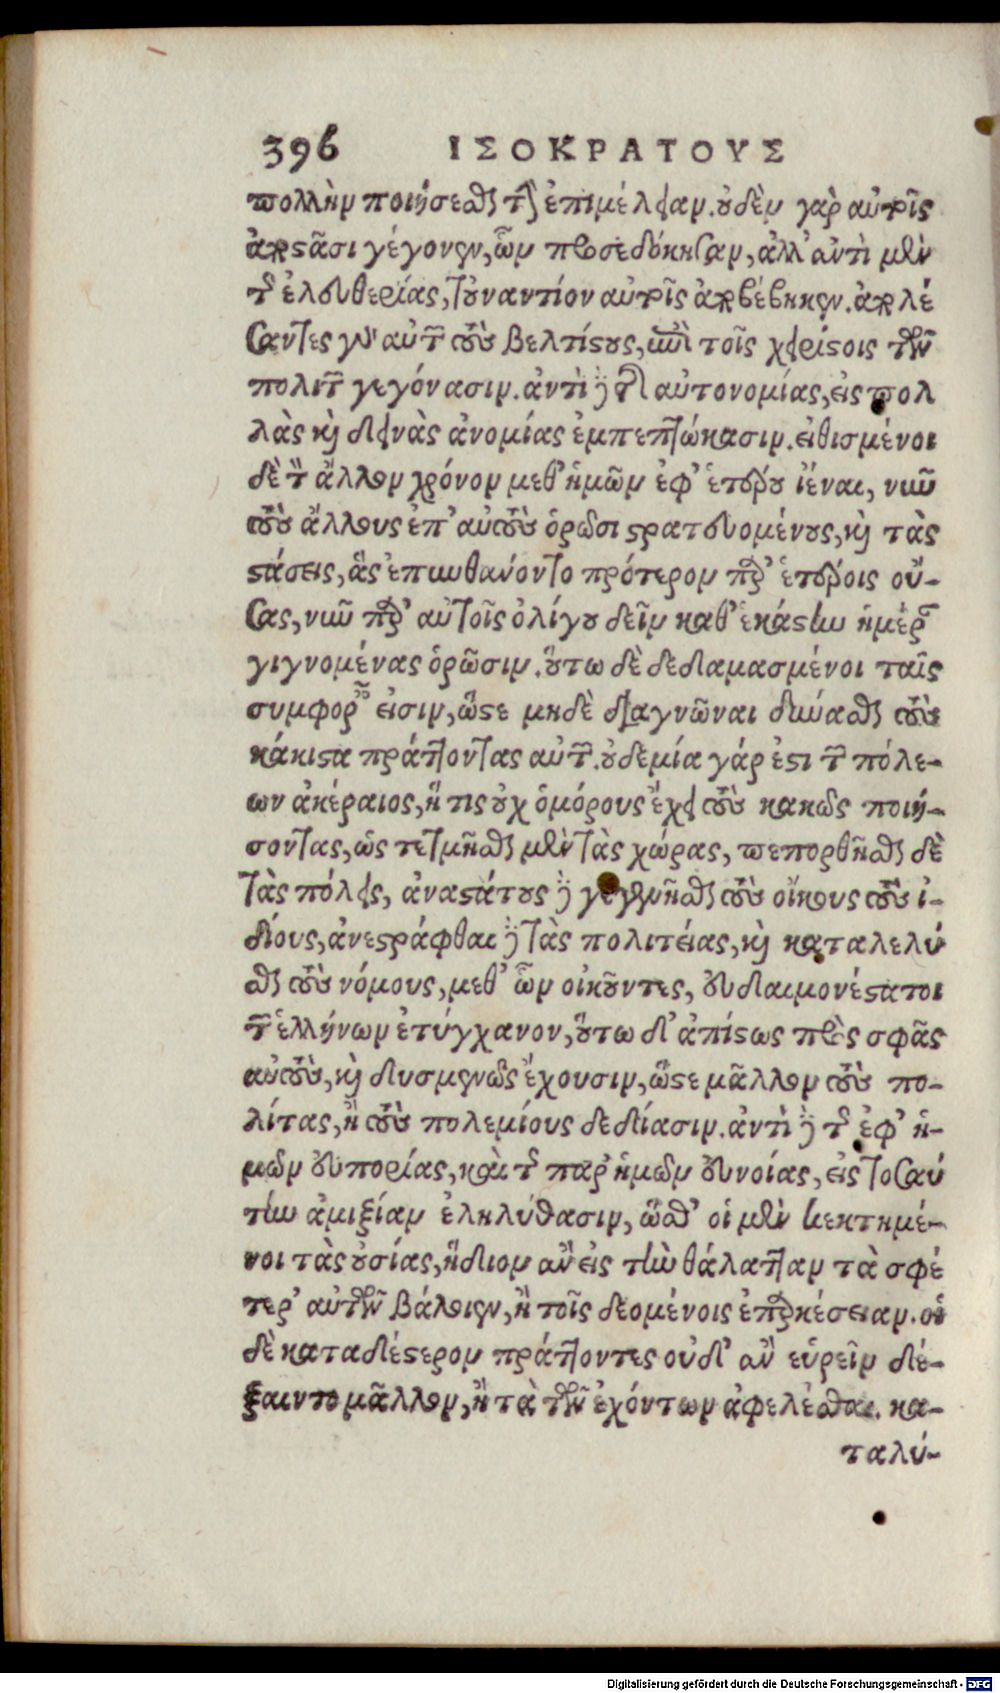 396 ΙΣΟΚΡΑΤΟΥΣ
πολλὴν ποιήσεσθαι τὴν ἐπιμέλειαν. οὐδὲν γὰρ αὐτοῖς
ἀποστᾶσι γέγονεν, ὧν προσεδόκησαν, ἀλλ' ἀντὶ μὲν
τῆς ἐλευθερίας, τοὐναντίον αὐτοῖς ἀποβέβηκεν. ἀπολέ
σαντες γὰρ αὐτῶν τοὺς βελτίστους, ἐπὶ τοῖς χειρίστοις τῶν
πολιτῶν γεγόνασιν. ἀντὶ δὲ τῆς αὐτονομίας, εἰς πολ
λὰς καὶ δεινὰς ἀνομίας ἐμπεπτώκασιν. εἰθισμένοι
δὲ τὸν ἄλλον χρόνον μεθ' ἡμῶν ἐφ' ἑτέρους ἰέναι, νῦν
τοὺς ἄλλους ἐπ' αὐτοὺς ὁρῶσι στρατευομένους, καὶ τὰς
στάσεις, ἃς ἐπυνθάνοντο πρότερον παρ' ἑτέροις οὔ-
σας, νῦν παρ' αὐτοῖς ὀλίγου δεῖν καθ' ἑκάστην ἡμέραν
γιγνομένας ὁρῶσιν. οὕτω δὲ δεδαμασμένοι ταῖς
συμφοραῖς εἰσιν, ὥστε μηδὲ διαγνῶναι δύνασθαι τοὺς
κάκιστα πράττοντας αὐτῶν. οὐδεμία γάρ ἐστι τῶν πόλε-
ων ἀκέραιος, ἥ τις οὐχ ὁμόρους ἔχει τοὺς κακῶς ποιή-
σοντας, ὡς τετμῆσθαι μὲν τὰς χώρας, πεπορθῆσθαι δὲ
τὰς πόλεις, ἀναστάτους δὲ γεγενῆσθαι τοὺς οἴκους τοὺς ἰ-
δίους, ἀνεστράφθαι δὲ τὰς πολιτείας, καὶ καταλελύ
σθαι τοὺς νόμους, μεθ' ὧν οἰκοῦντες, εὐδαιμονέστατοι
τῶν ἑλλήνων ἐτύγχανον, οὕτω δ' ἀπίστως πρὸς σφᾶς
αὐτοὺς, καὶ δυσμενῶς ἔχουσιν, ὥστε μᾶλλον τοὺς πο-
λίτας, ἢ τοὺς πολεμίους δεδίασιν. ἀντὶ δὲ τῆς ἐφ' ἡ-
μῶν εὐπορίας, καὶ τῆς παρ' ἡμῶν εὐνοίας, εἰς τοσαύ
την ἀμιξίαν ἐληλύθασιν, ὥσθ' οἱ μὲν κεκτημέ-
νοι τὰς οὐσίας, ἥδιον ἂν εἰς τὴν θάλατταν τὰ σφέ
τερ' αὐτῶν βάλοιεν, ἢ τοῖς δεομένοις ἐπαρκέσειαν. οἱ
δὲ καταδέστερον πράττοντες οὐδ' ἂν εὑρεῖν δέ-
ξαιντο μᾶλλον, ἢ τὰ τῶν ἐχόντων ἀφελέσθαι. κα-
ταλύ-
Digitalisierung gefördert durch die Deutsche Forschungsgemeinschaft - DFG